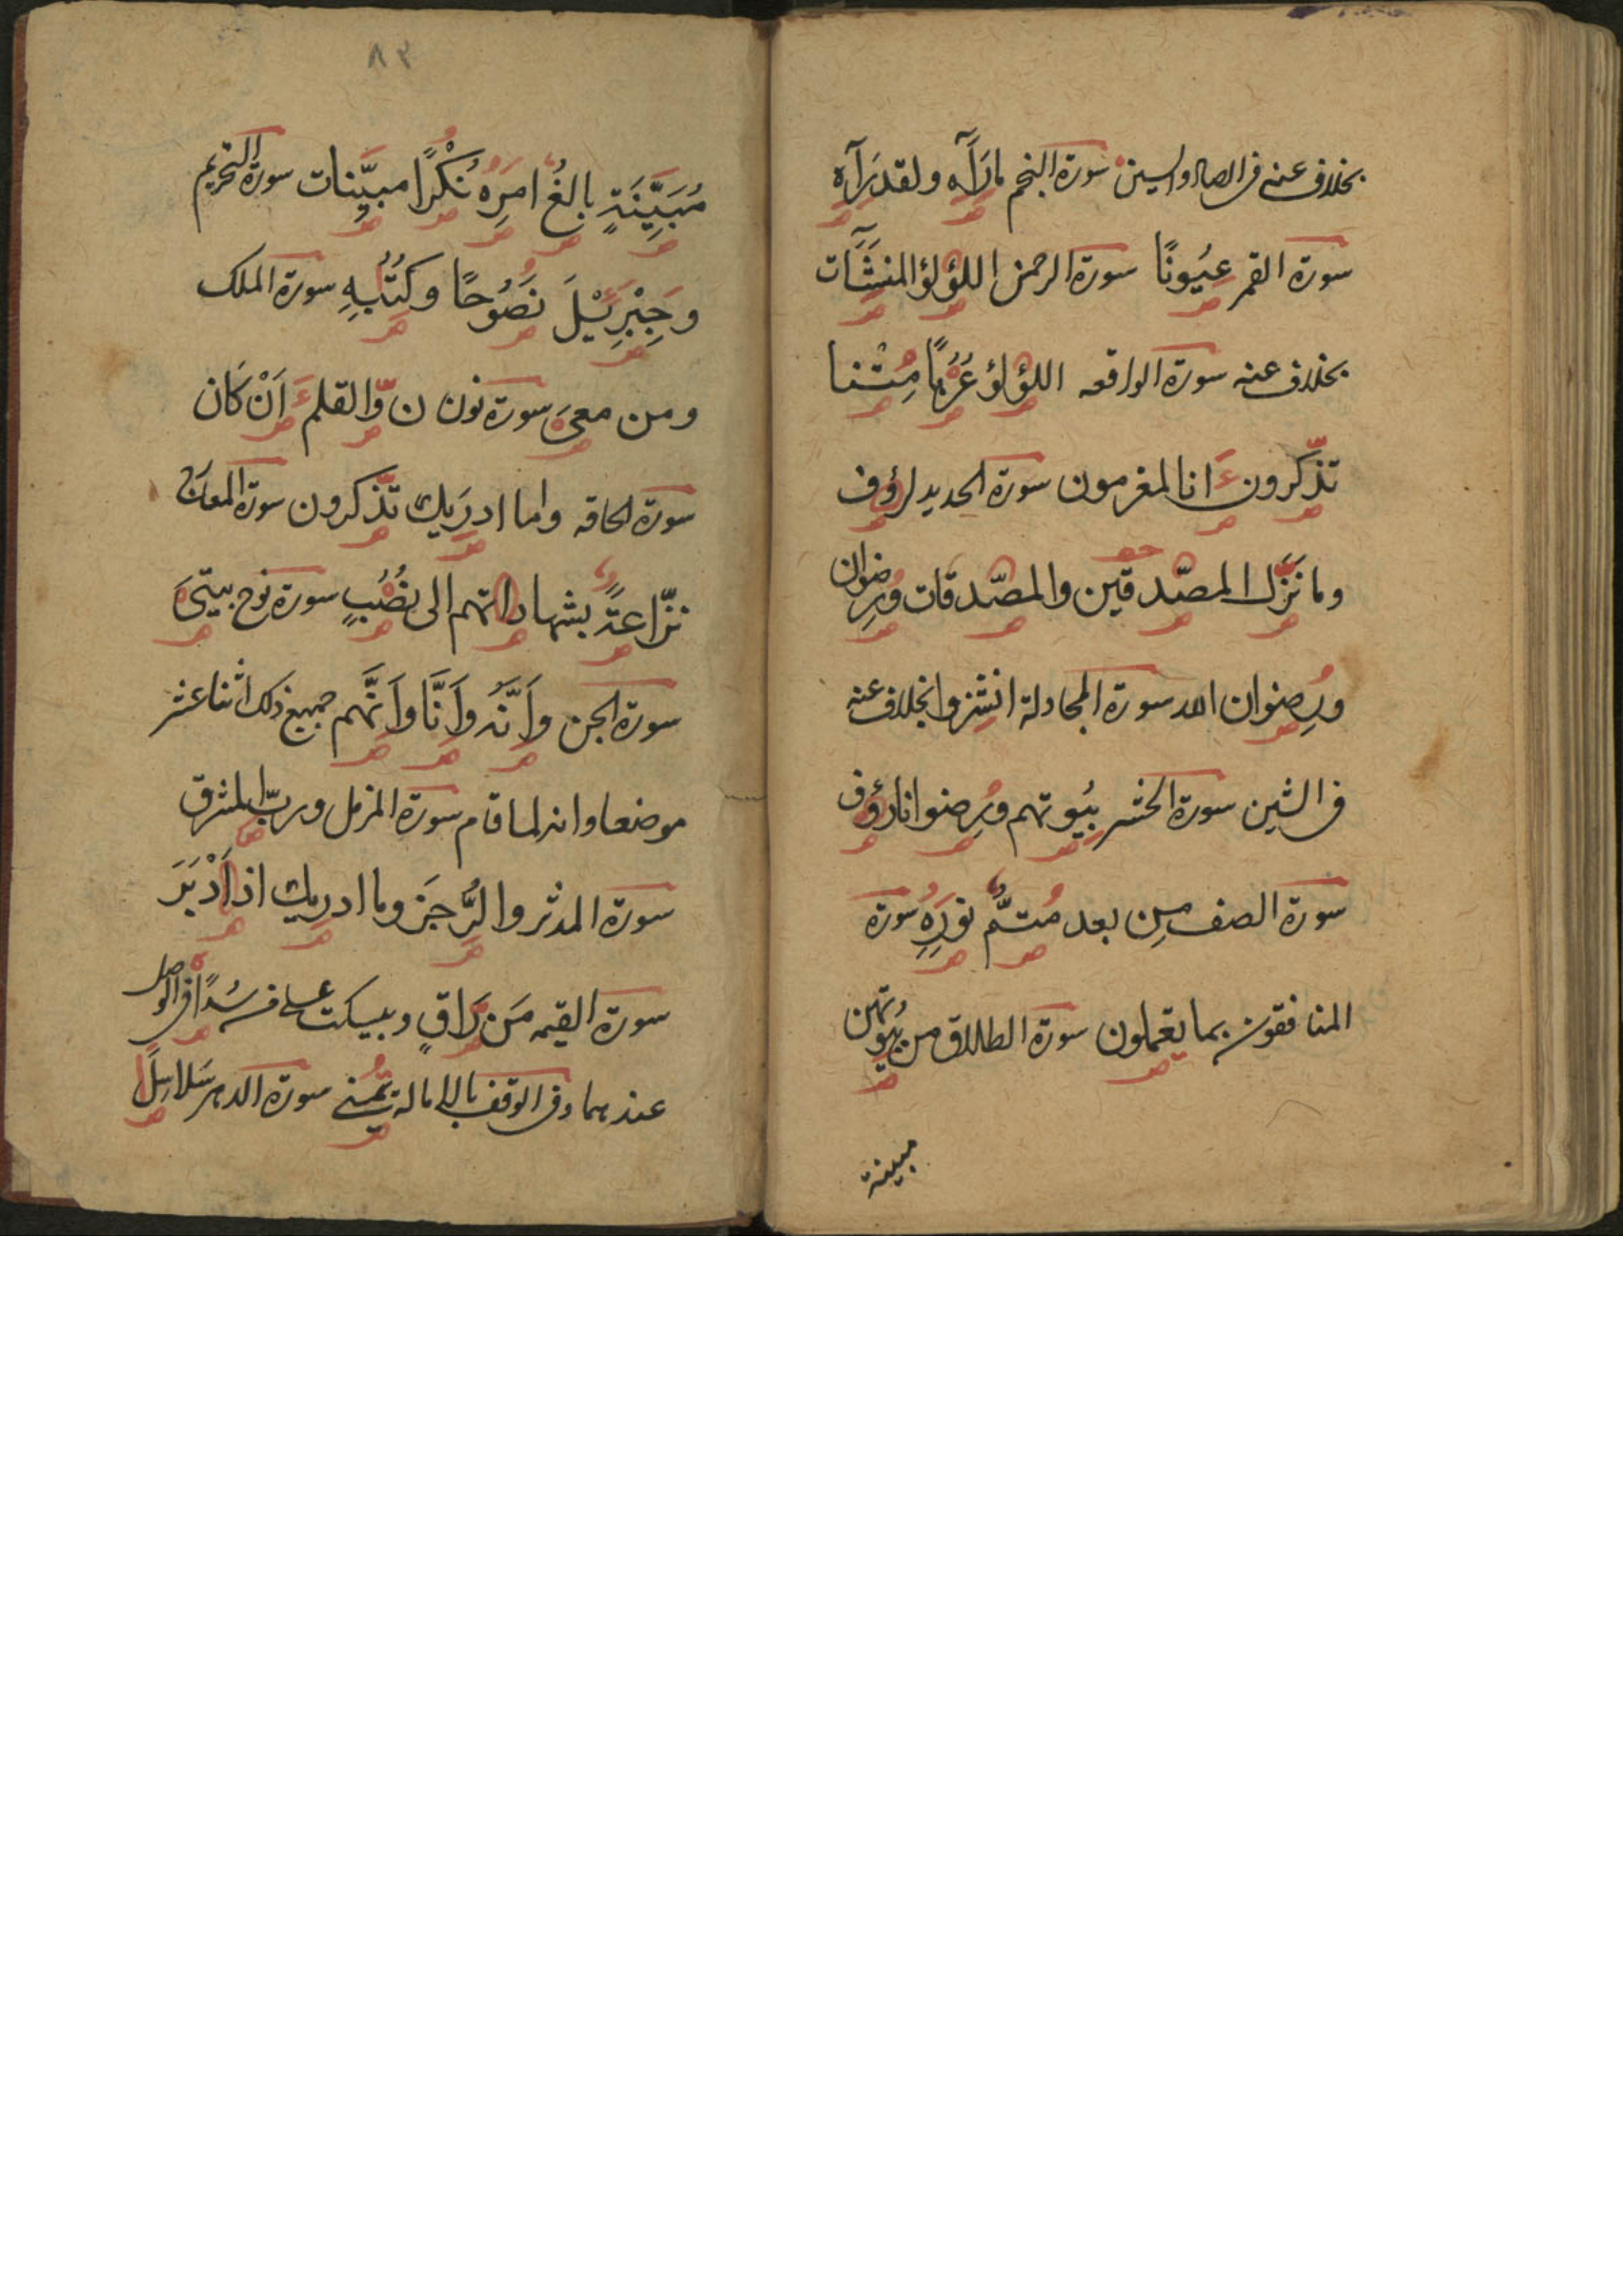 بخلاف عنه فى الصاد والسين سورة النجم ما رَاٰه ولقد رَاٰه
سورة القمر عيُونًا سورة الرحمن اللؤلؤ المنشَئَات
بخلاف عنه سورة الواقعه اللؤلؤ عُرُبًا مِتْنا
تذّكرون ءَانا لمغرمون سورة الحديد لرؤف
وما نَزَّل المصّدقين والمصّدقات ورضوان
ورضوان الله سورة المجادلة انشزوا بخلاف عنه
فى الشين سورة الحشر بيُوتهم ورضوانا رؤف
سورة الصف مِن بعد مُتمٌّ نورَهِ سورة
المنافقون بما يعملون سورة الطلاق من بيُوتهن
مبينة
٨٣
مُبَيِّنَةٍ بالغٌ امرَهِ نُكْرًا مبيِّنات سورة التحريم
وَجِبْرِئيْلَ نَصُوحًا وكتُبِهِ سورة الملك
ومن معىَ سورة نون ن وّالقلم ءَاَنْ كَان
سورة الحاقه وما ادريك تذّكرون سورة المعارج
نزّاعةً بشهاداتهم الى نصُبٍ سورة نوح بيتىَ
سورة الجن واَنَّه واَنَّا واَنَّهم جميع ذلك اثنا عشر
موضعا وانه لما قام سورة المزمل وربّ المشرق
سورة المدثر والرُّجزَ وما ادريك اذ اَدْبَرَ
سورة القيمه مَن رَاقٍ ويسكت على من سُدًا فى الوصل
عندهما وفى الوقف بالاماله يُمنى سورة الدهر سَلاسِلً